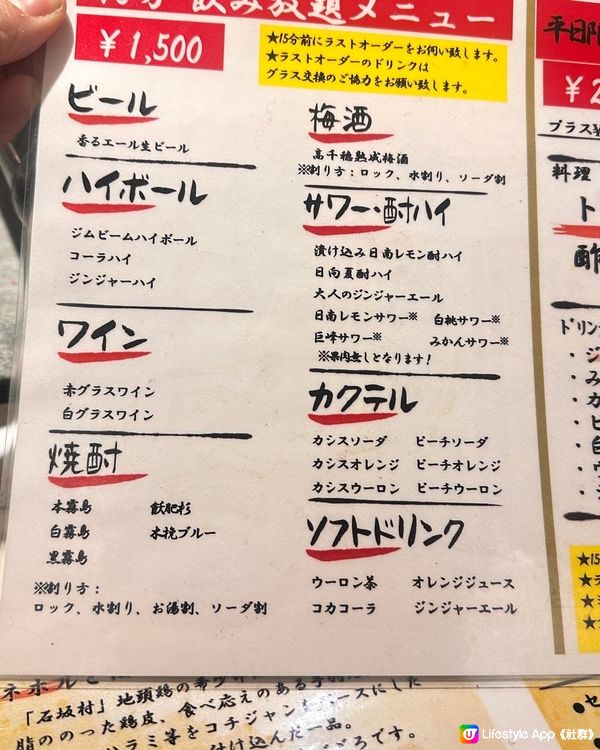 飲み放題メニュー
¥1,500
★15分前にラストオーダーをお伺い致します。
★ラストオーダーのドリンクは
グラス交換のご協力をお願い致します。
ビール
香るエール生ビール
ハイボール
ジムビームハイボール
コーラハイ
ジンジャーハイ
ワイン
赤グラスワイン
白グラスワイン
焼酎
本霧島 飫肥杉
白霧島 木挽ブルー
黒霧島
※割り方：
ロック、水割り、お湯割、ソーダ割
梅酒
高千穂熟成梅酒
※割り方：ロック、水割り、ソーダ割
サワー・酎ハイ
漬け込み日南レモン酎ハイ
日向夏酎ハイ
大人のジンジャーエール
日南レモンサワー※ 白桃サワー※
巨峰サワー※ みかんサワー※
※果肉無しとなります！
カクテル
カシスソーダ ピーチソーダ
カシスオレンジ ピーチオレンジ
カシスウーロン ピーチウーロン
ソフトドリンク
ウーロン茶 オレンジジュース
コカコーラ ジンジャーエール
平日限
¥2
プラス¥
料理
ト
酢
ドリン
・ジ
・み
・カ
・ピ
・白
・ウ
・ジ
★15
「石坂村」地頭鶏の希少
脂ののった鶏皮、食べ応えのある
ハラミ等をコチジャン
ースにした
付け込んだ一品。
ごろです。
●セ
Lifestyle App《社群》